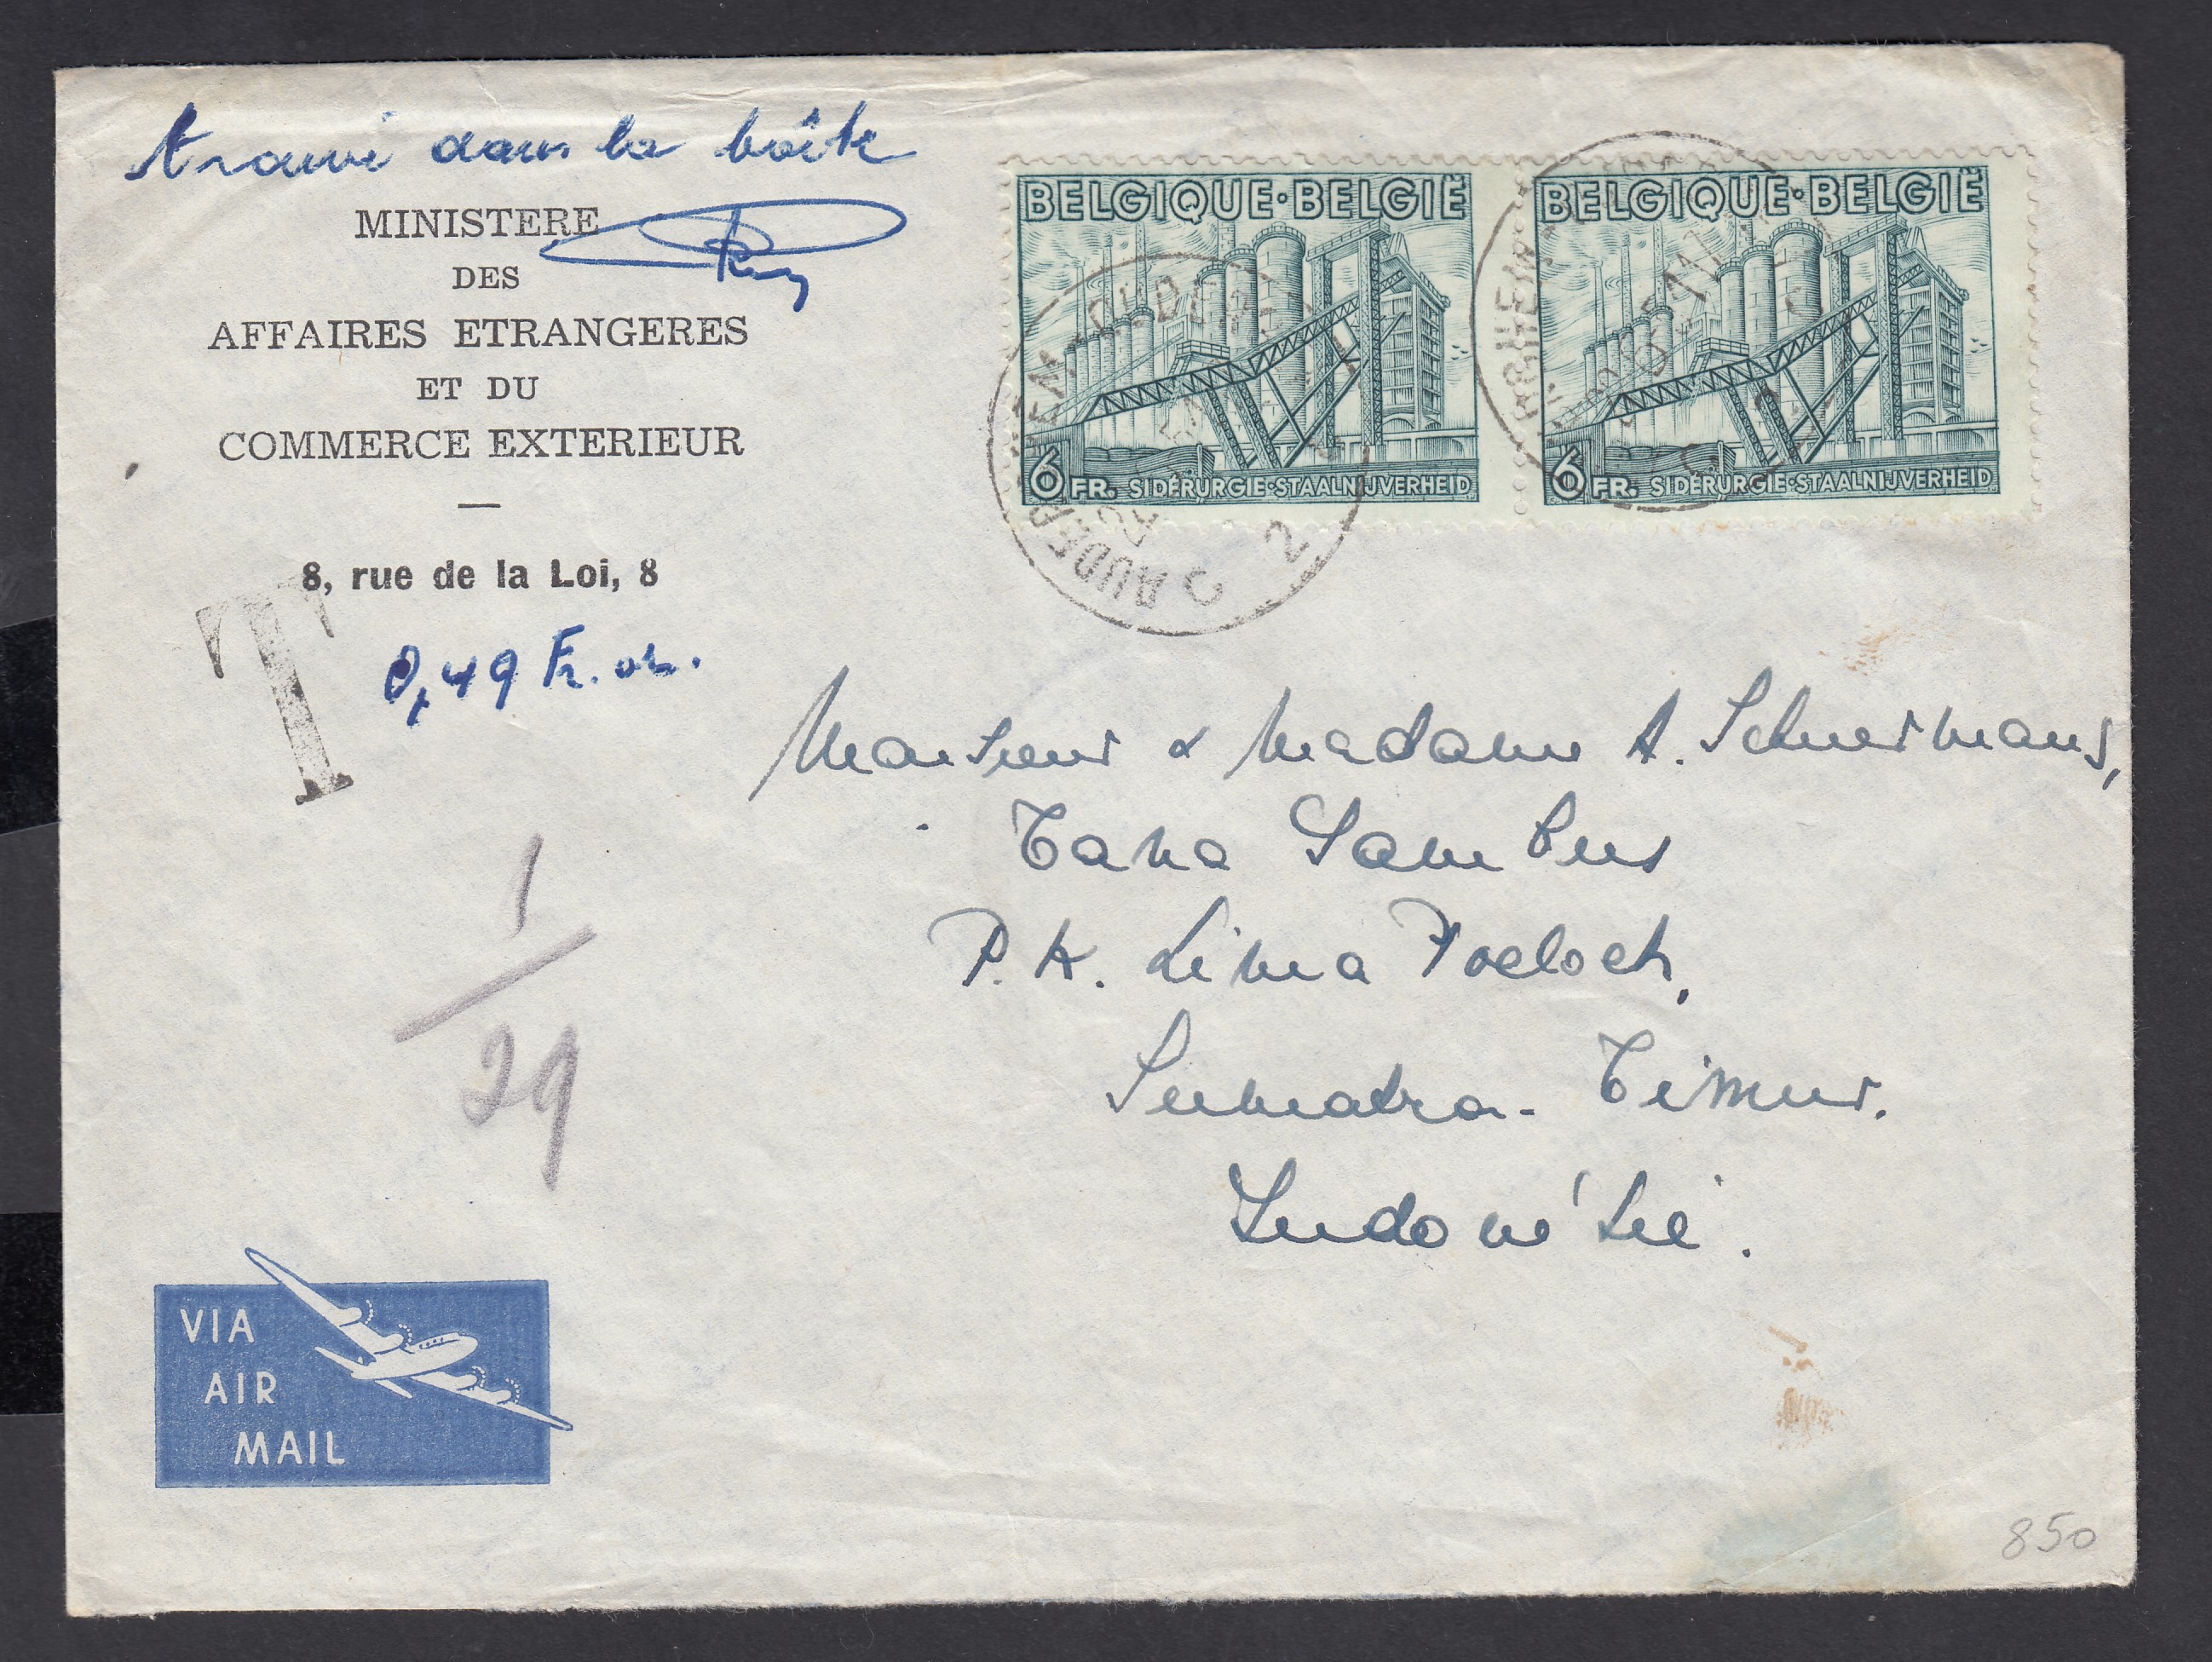 trouvé dans la boîte
MINISTERE
DES
AFFAIRES ETRANGERES
ET DU
COMMERCE EXTERIEUR
8, rue de la Loi, 8
T
0,49 Fr. or.
1/29
BELGIQUE·BELGIË
6 FR. SIDÉRURGIE·STAALNIJVERHEID
BELGIQUE·BELGIË
6 FR. SIDÉRURGIE·STAALNIJVERHEID
Monsieur & Madame A. Schuermans,
Tana Gambus
P.K. Lima Poeloeh,
Sumatra - Timur.
Indonésie.
VIA
AIR
MAIL
850